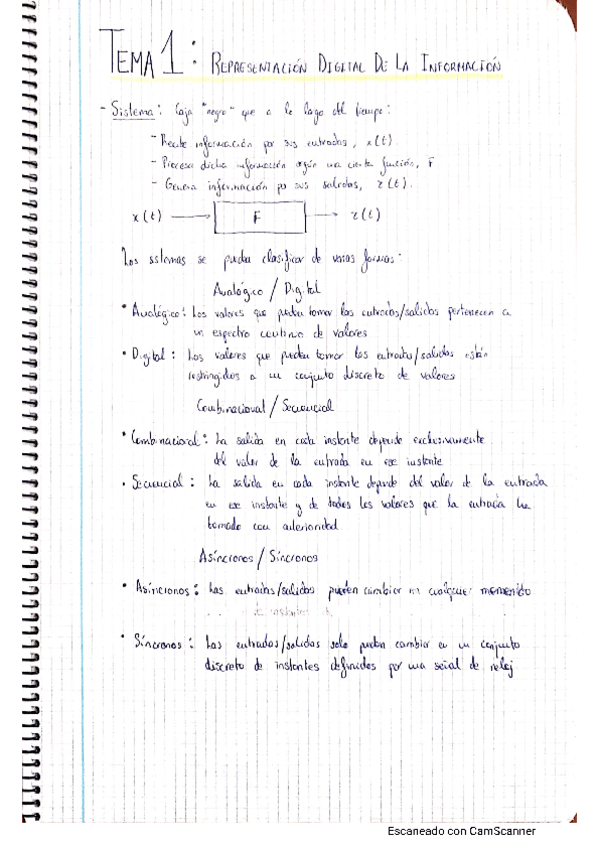 TEMA 1: REPRESENTACIÓN DIGITAL DE LA INFORMACIÓN
- Sistema: Caja "negra" que a lo largo del tiempo:
- Recibe información por sus entradas, x(t).
- Procesa dicha información según una cierta función, F
- Genera información por sus salidas, z(t).
x(t) → F → z(t)
Los sistemas se pueden clasificar de varias formas:
Analógico / Digital
• Analógico: Los valores que pueden tomar las entradas/salidas pertenecen a
un espectro continuo de valores
• Digital: Los valores que pueden tomar las entradas/salidas están
restringidos a un conjunto discreto de valores
Combinacional / Secuencial
• Combinacional: La salida en cada instante depende exclusivamente
del valor de la entrada en ese instante
• Secuencial: La salida en cada instante depende del valor de la entrada
en ese instante y de todos los valores que la entrada ha
tomado con anterioridad
Asíncronos / Síncronos
• Asíncronos: Las entradas/salidas pueden cambiar en cualquier momento
• Síncronos: Las entradas/salidas solo pueden cambiar en un conjunto
discreto de instantes definidos por una señal de reloj
Escaneado con CamScanner